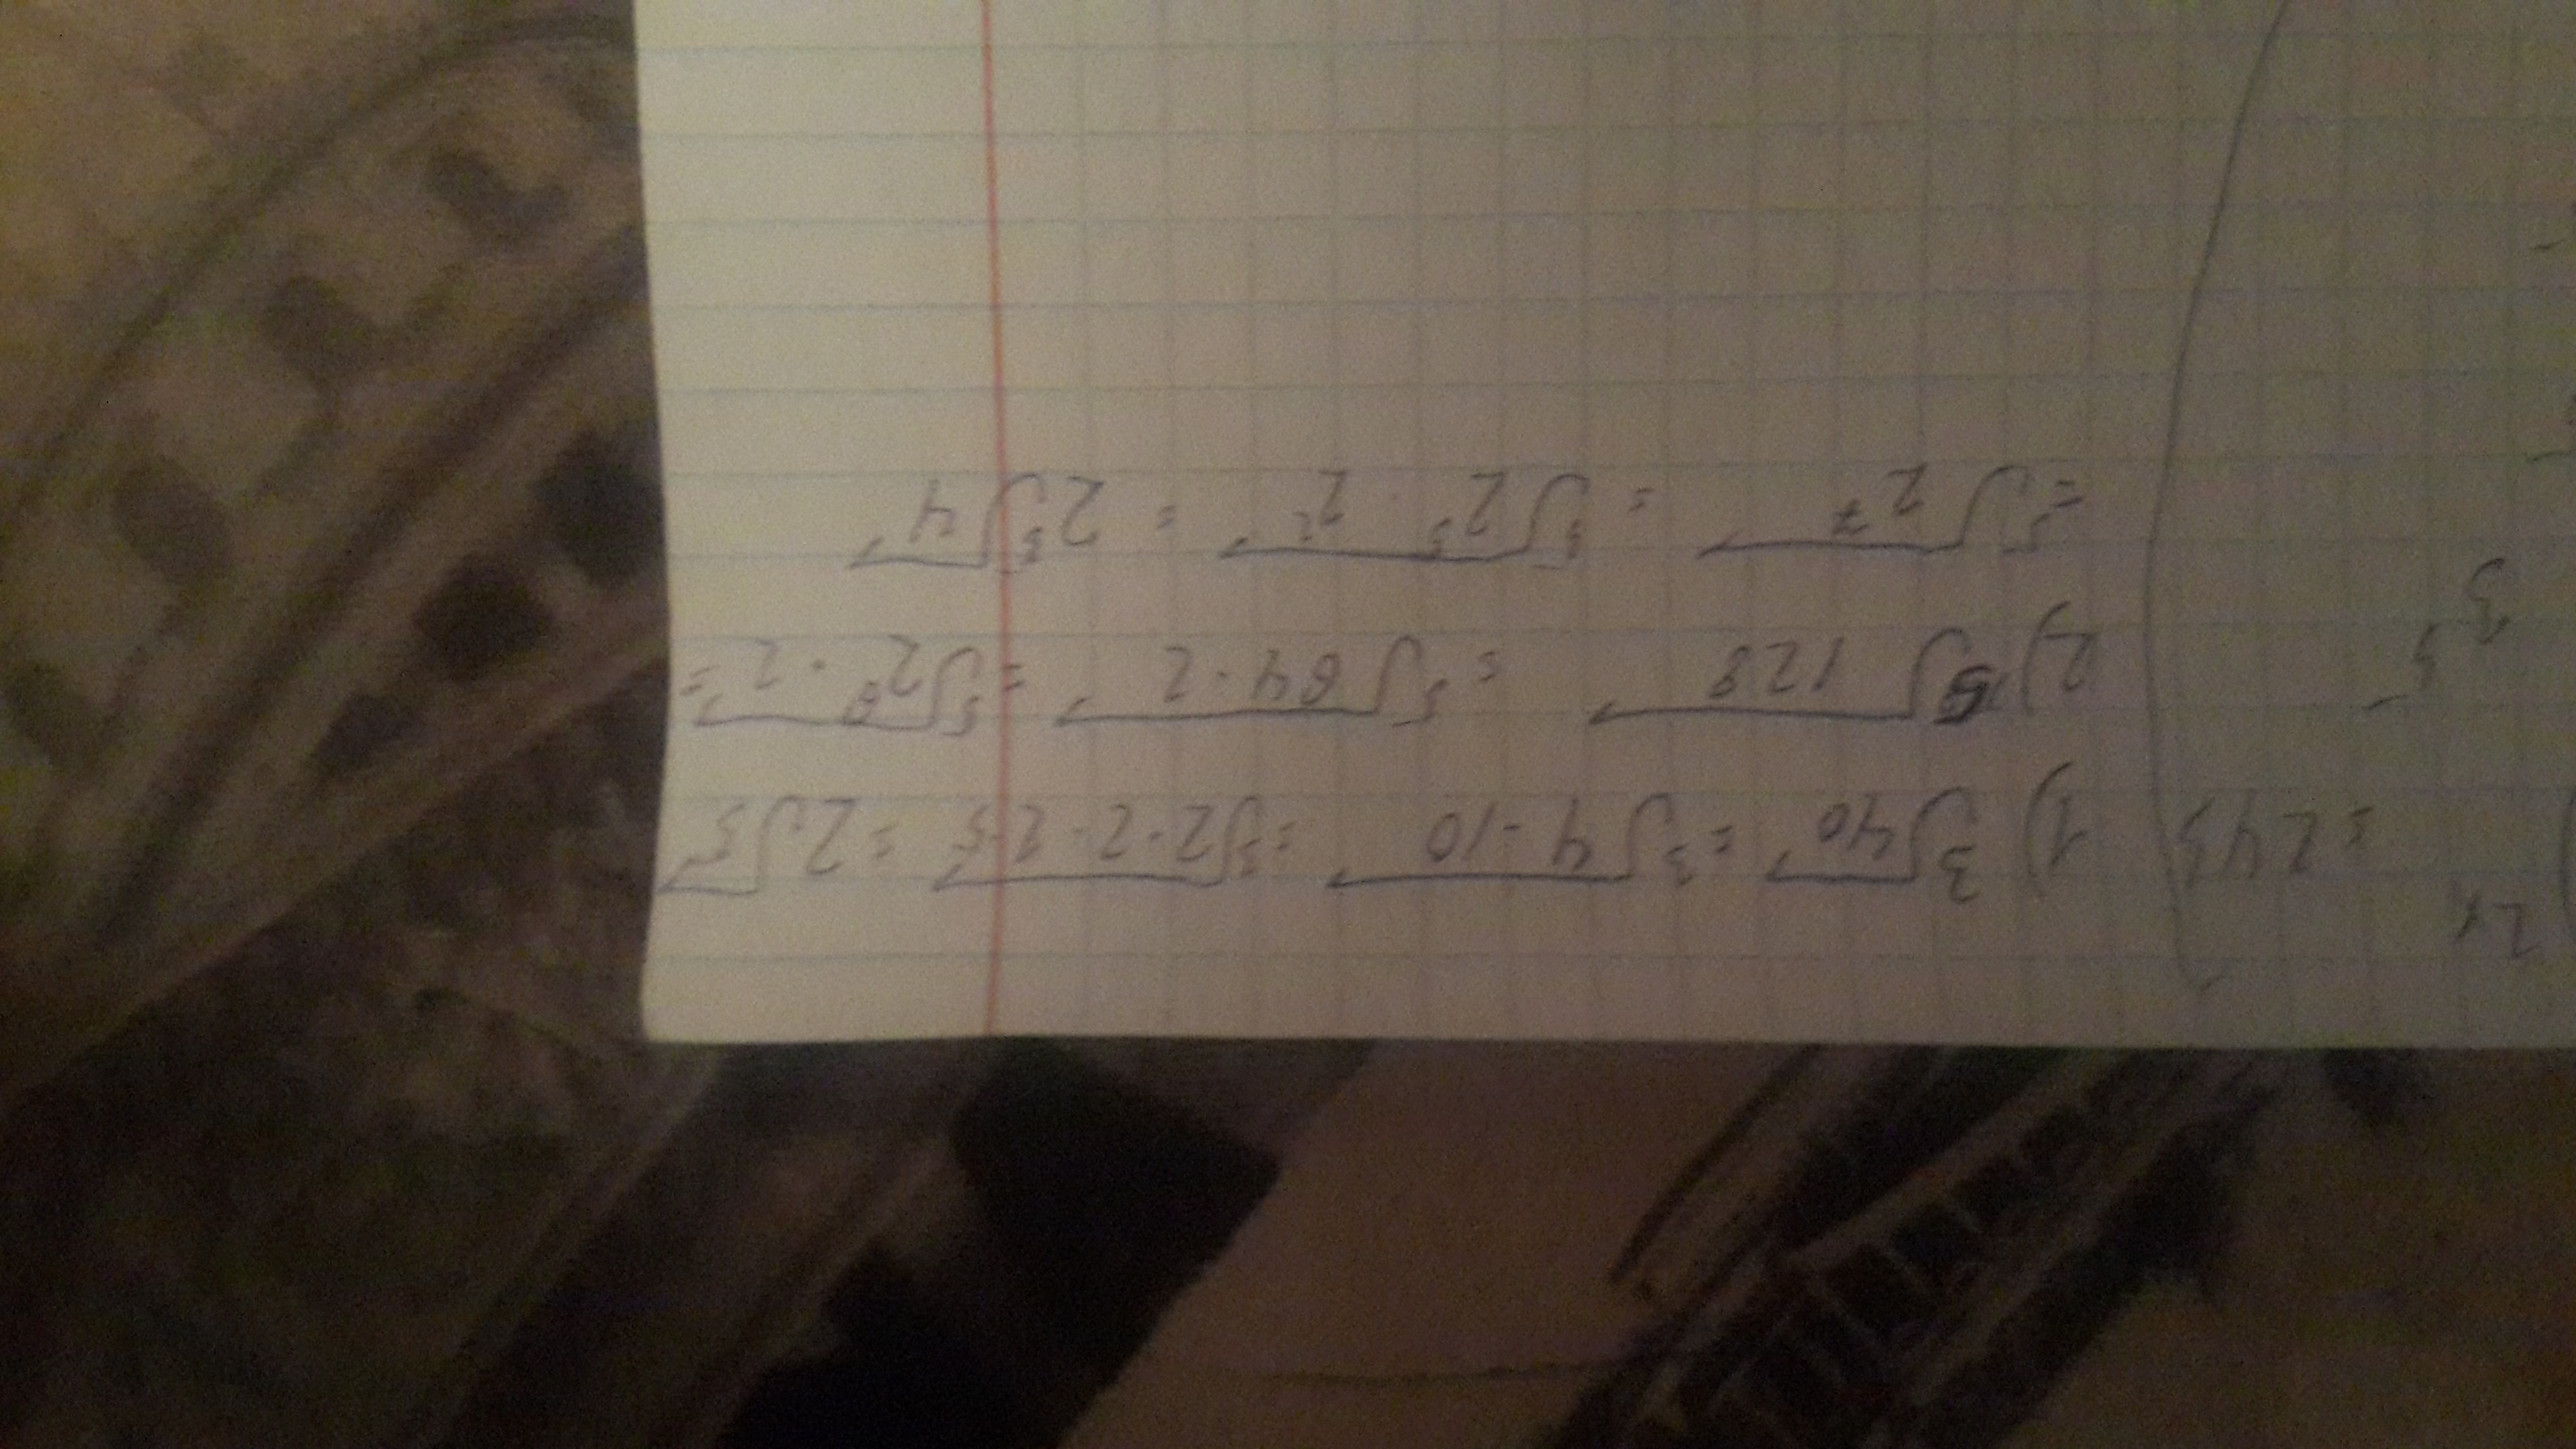 1) ³√40 = ³√4·10 = ³√2·2·2·5 = 2√5
2) ⁵√128 = ⁵√64·2 = ⁵√2⁶·2 =
= ⁵√2⁷ = ⁵√2⁵·2² = 2⁵√4
= 243